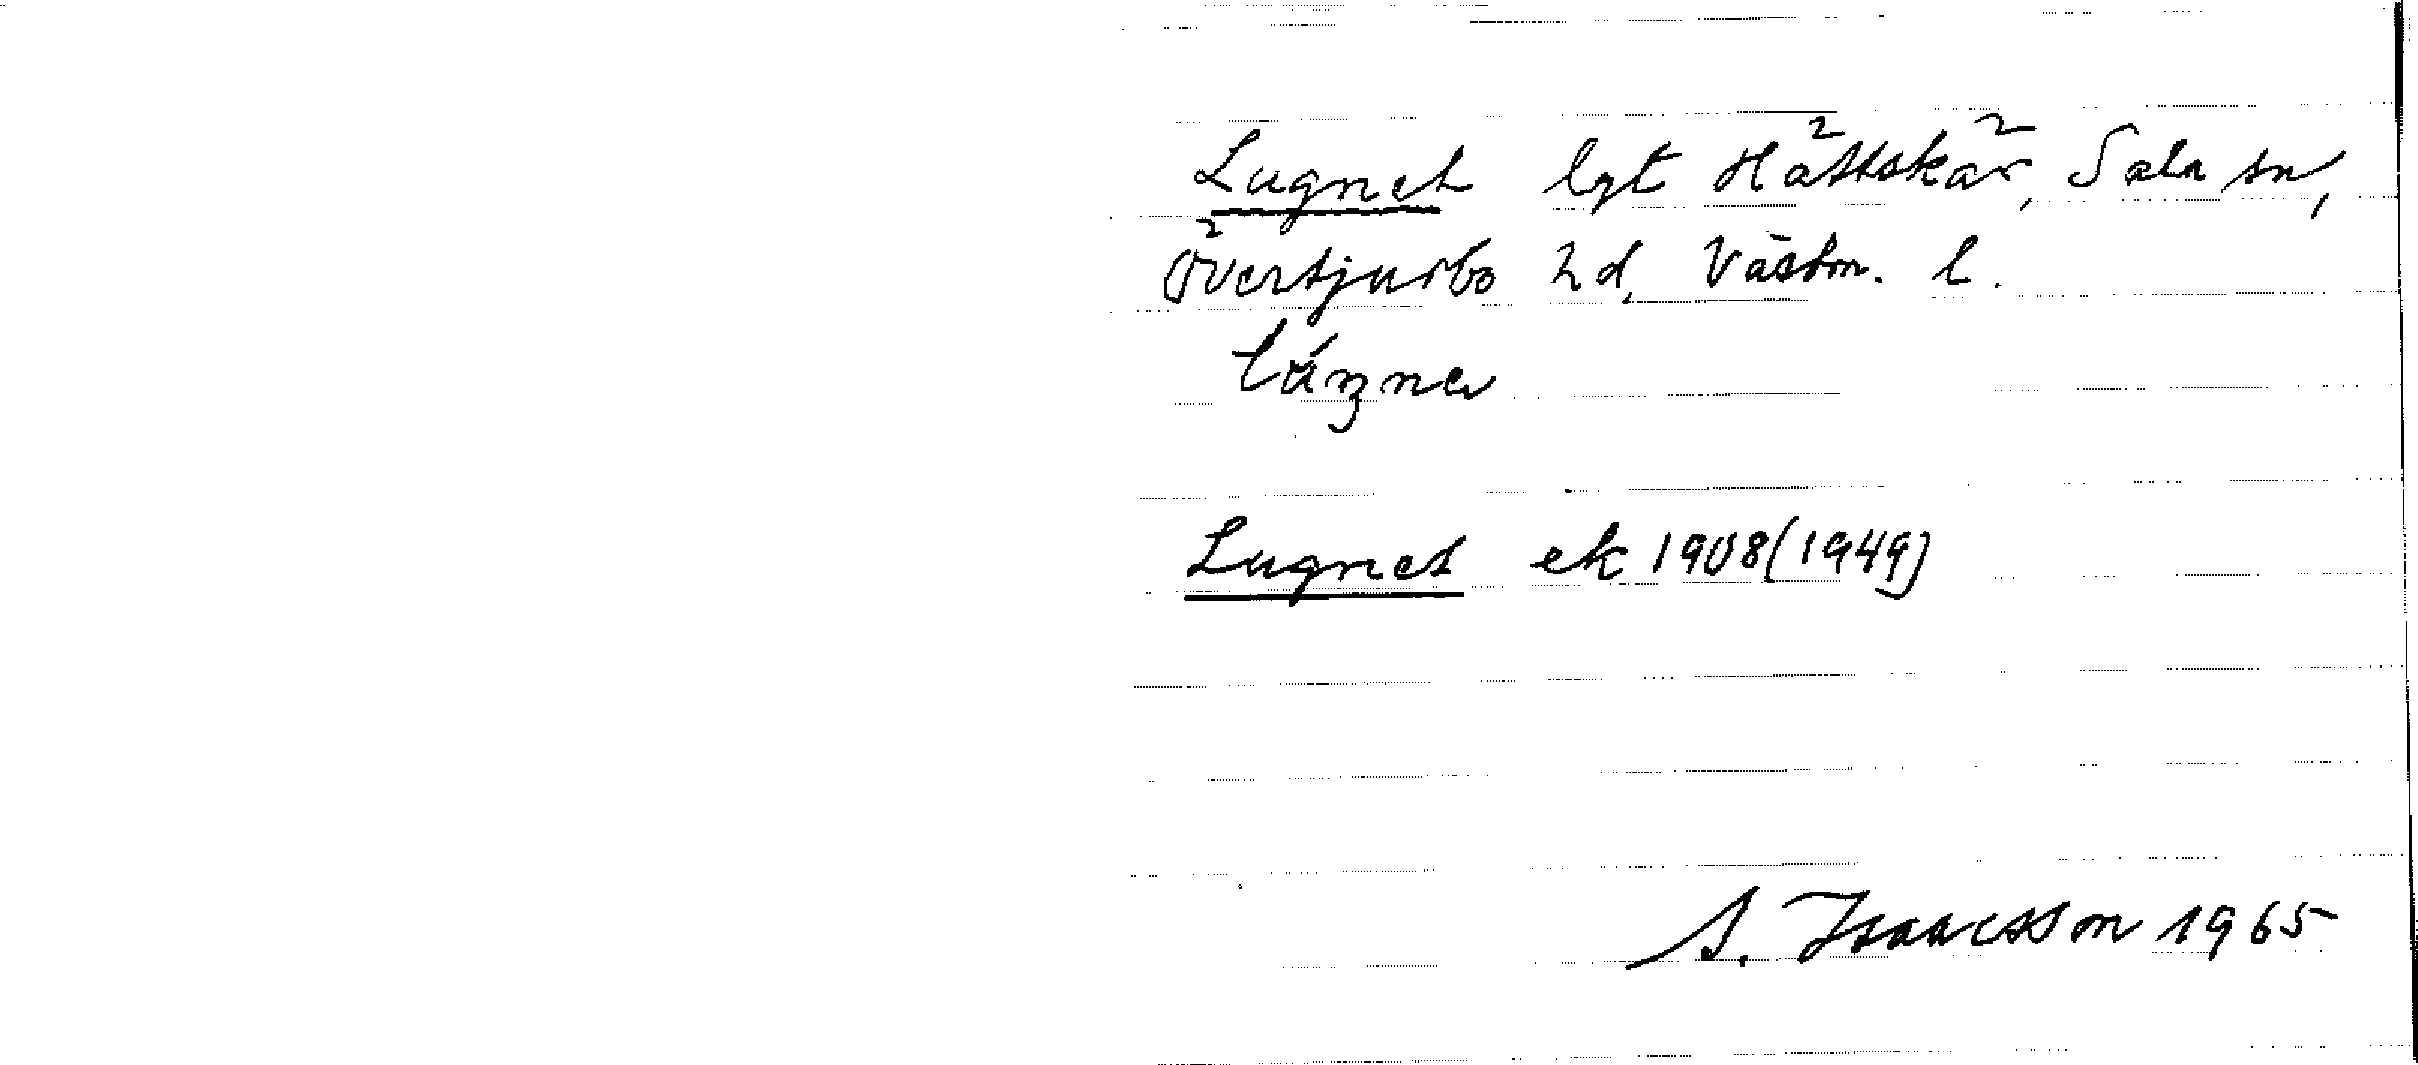 Lugnet lgt Hättskär, Sala sn,
Övertjurbo hd, Västm. l.
Lugnet ek 1908(1949)
S. Isaacsson 1965